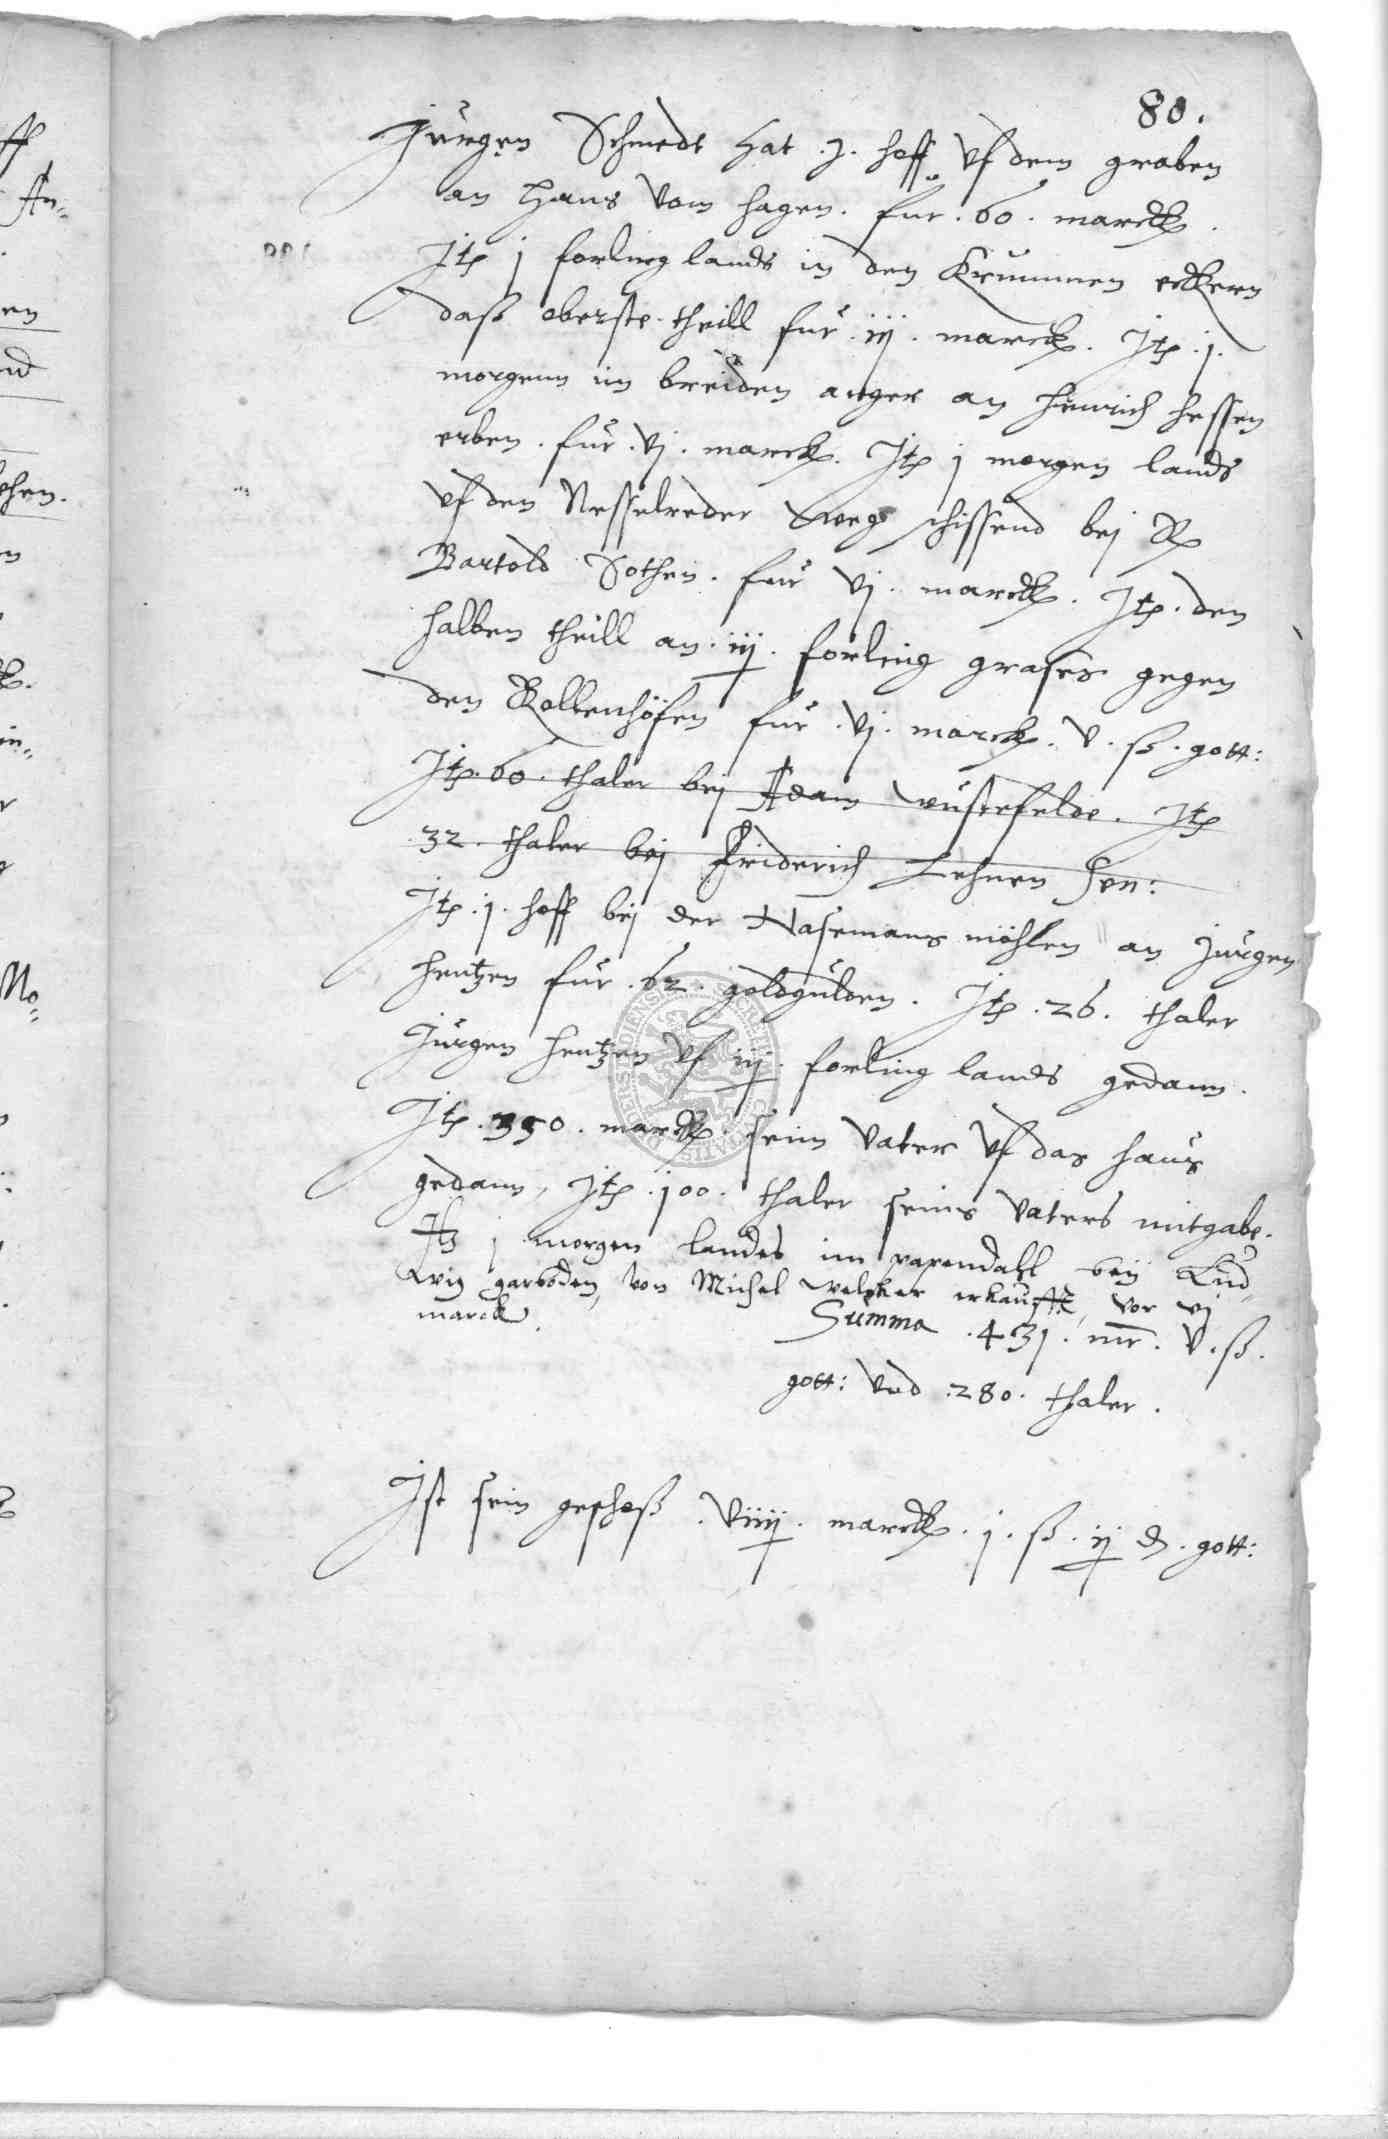 80.
Jürgen Schmedt hat .j. hoff uf dem graben
an Hans vom hagen. fur .60. marck.
Jtem j forling lands in den Krummen eckern
daß oberste theill fur .iij. marck. Jtem .j.
morgenn im breiden anger an Hinrich hessen
erben. fur .vj. marck. Jtem j morgen lands
uf den Nesselreder weg schissend bej
Bartold Sothen. fur vj. marck. Jtem. den
halben theill an .iij. forling grases gegen
den Rollenhöfen fur .vj. marck. v. ß. gott:
Jtem. 60. thaler bej Adam wustefelde. Jtem
32. thaler bej Friderich Lehnen sen:
Jtem .j. hoff bej der Hasemans möhlen an Jürgen
hentzen fur .62. goldgulden. Jtem .26. thaler
Jürgen hentzen uf iij. forling lands gedann.
Jtem .350. marck. seim vater uf das haus
gedann, Jtem .100. thaler seins vaters mitgabe.
Jtem j morgen landes im papendahl beij Lud-
wig garboden, von Michel welcker erkaufft, vor vj
marck.
Summa .431. mr. v. ß.
gott: vnd .280. thaler.
Jst sein geschoß .viiij. marck. j. ß. ij d. gott: